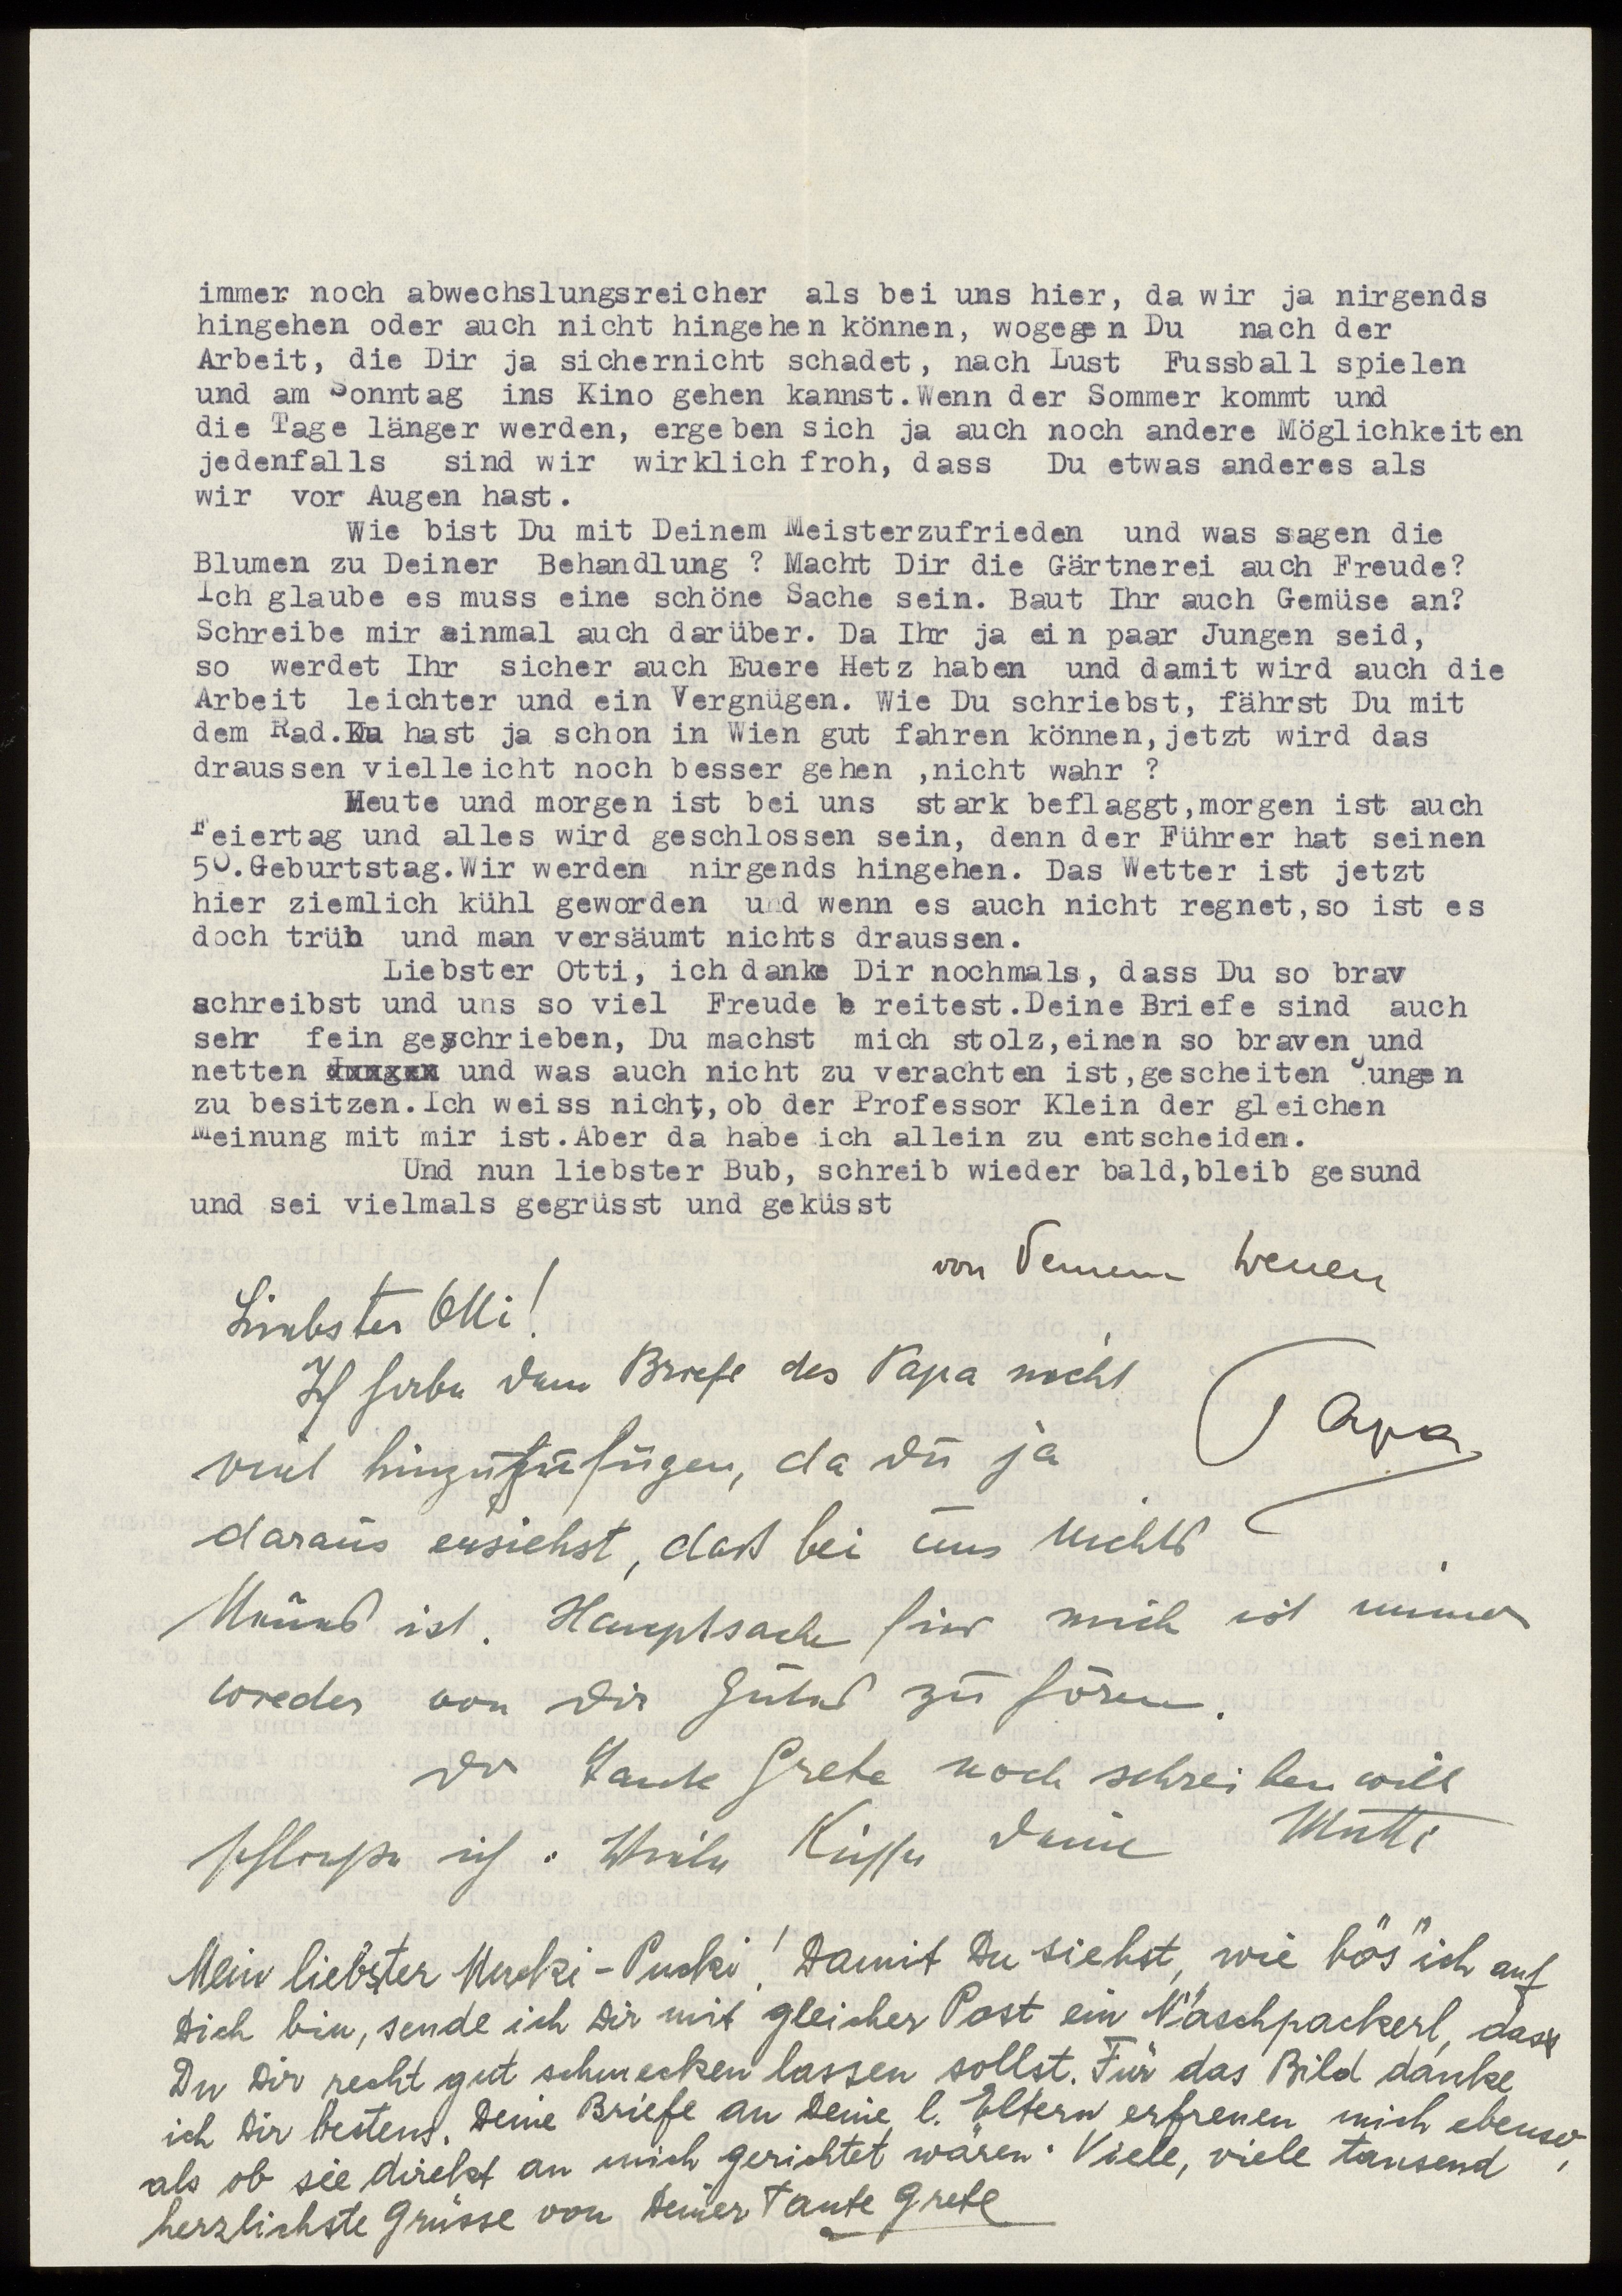 immer noch abwechslungsreicher als bei uns hier, da wir ja nirgends
hingehen oder auch nicht hingehen können, wogegen Du nach der
Arbeit, die Dir ja sichernicht schadet, nach Lust Fussball spielen
und am Sonntag ins Kino gehen kannst.Wenn der Sommer kommt und
die Tage länger werden, ergeben sich ja auch noch andere Möglichkeiten
jedenfalls sind wir wirklich froh, dass Du etwas anderes als
wir vor Augen hast.
Wie bist Du mit Deinem Meisterzufrieden und was sagen die
Blumen zu Deiner Behandlung ? Macht Dir die Gärtnerei auch Freude?
Ich glaube es muss eine schöne Sache sein. Baut Ihr auch Gemüse an?
Schreibe mir einmal auch darüber. Da Ihr ja ein paar Jungen seid,
so werdet Ihr sicher auch Euere Hetz haben und damit wird auch die
Arbeit leichter und ein Vergnügen. Wie Du schriebst, fährst Du mit
dem Rad.Du hast ja schon in Wien gut fahren können,jetzt wird das
draussen vielleicht noch besser gehen ,nicht wahr ?
Heute und morgen ist bei uns stark beflaggt,morgen ist auch
Feiertag und alles wird geschlossen sein, denn der Führer hat seinen
50.Geburtstag.Wir werden nirgends hingehen. Das Wetter ist jetzt
hier ziemlich kühl geworden und wenn es auch nicht regnet,so ist es
doch trüb und man versäumt nichts draussen.
Liebster Otti, ich danke Dir nochmals, dass Du so brav
schreibst und uns so viel Freude b reitest.Deine Briefe sind auch
sehr fein geschrieben, Du machst mich stolz,einen so braven und
netten und was auch nicht zu verachten ist,gescheiten Jungen
zu besitzen.Ich weiss nicht,ob der Professor Klein der gleichen
Meinung mit mir ist.Aber da habe ich allein zu entscheiden.
Und nun liebster Bub, schreib wieder bald,bleib gesund
und sei vielmals gegrüsst und geküsst
von Deinem treuen
Papa
Liebster Otti!
Ich habe dem Briefe des Papa nicht
viel hinzuzufügen, da Du ja
daraus ersiehst, daß bei uns nichts
Neues ist. Hauptsache für mich ist immer
wieder von Dir Gutes zu hören.
Da Tante Grete noch schreiben will
schließe ich. Viele Küsse Deine Mutti
Mein liebster Mucki-Pucki! Damit Du siehst, wie "bös" ich auf
Dich bin, sende ich Dir mit gleicher Post ein Naschpackerl, dass
Du Dir recht gut schmecken lassen sollst. Für das Bild danke
ich Dir bestens. Deine Briefe an Deine l. Eltern erfreuen mich ebenso,
als ob sie direkt an mich gerichtet wären. Viele, viele tausend
herzlichste Grüsse von Deiner Tante Grete